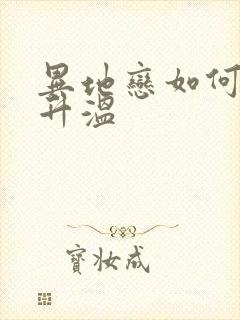 異地戀如何
升溫
寶妝成